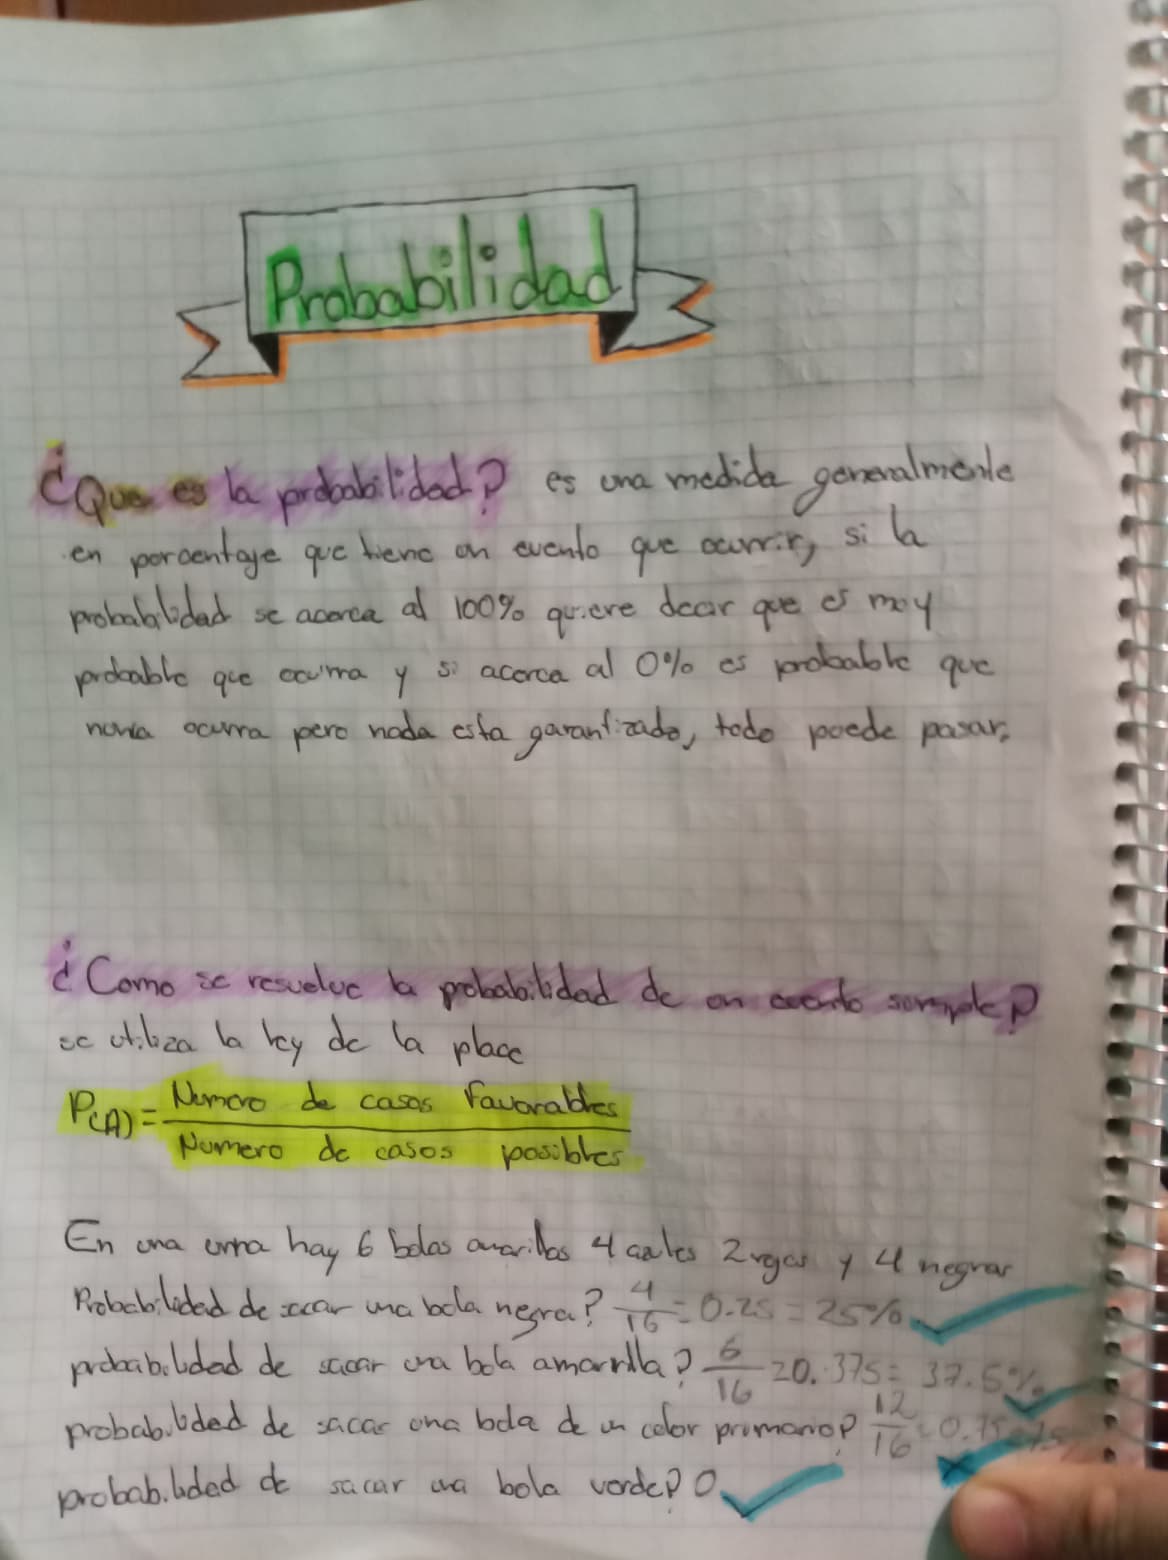 Probabilidad
¿Que es la probabilidad? es una medida generalmente
en porcentaje que tiene un evento que ocurrir, si la
probabilidad se acerca al 100% quiere decir que es muy
probable que ocurra y si acerca al 0% es probable que
nunca ocurra pero nada esta garantizado, todo puede pasar.
¿Como se resuelve la probabilidad de un evento simple?
se utiliza la ley de la place
P(A) = Numero de casos Favorables
Numero de casos posibles
En una urna hay 6 bolas amarillas 4 azules 2 rojas y 4 negras
Probabilidad de sacar una bola negra? 4/16 = 0.25 = 25%
probabilidad de sacar una bola amarilla? 6/16 = 0.375 = 37.5%
probabilidad de sacar una bola de un color primario? 12/16 = 0.75 = 75
probabilidad de sacar una bola verde? 0